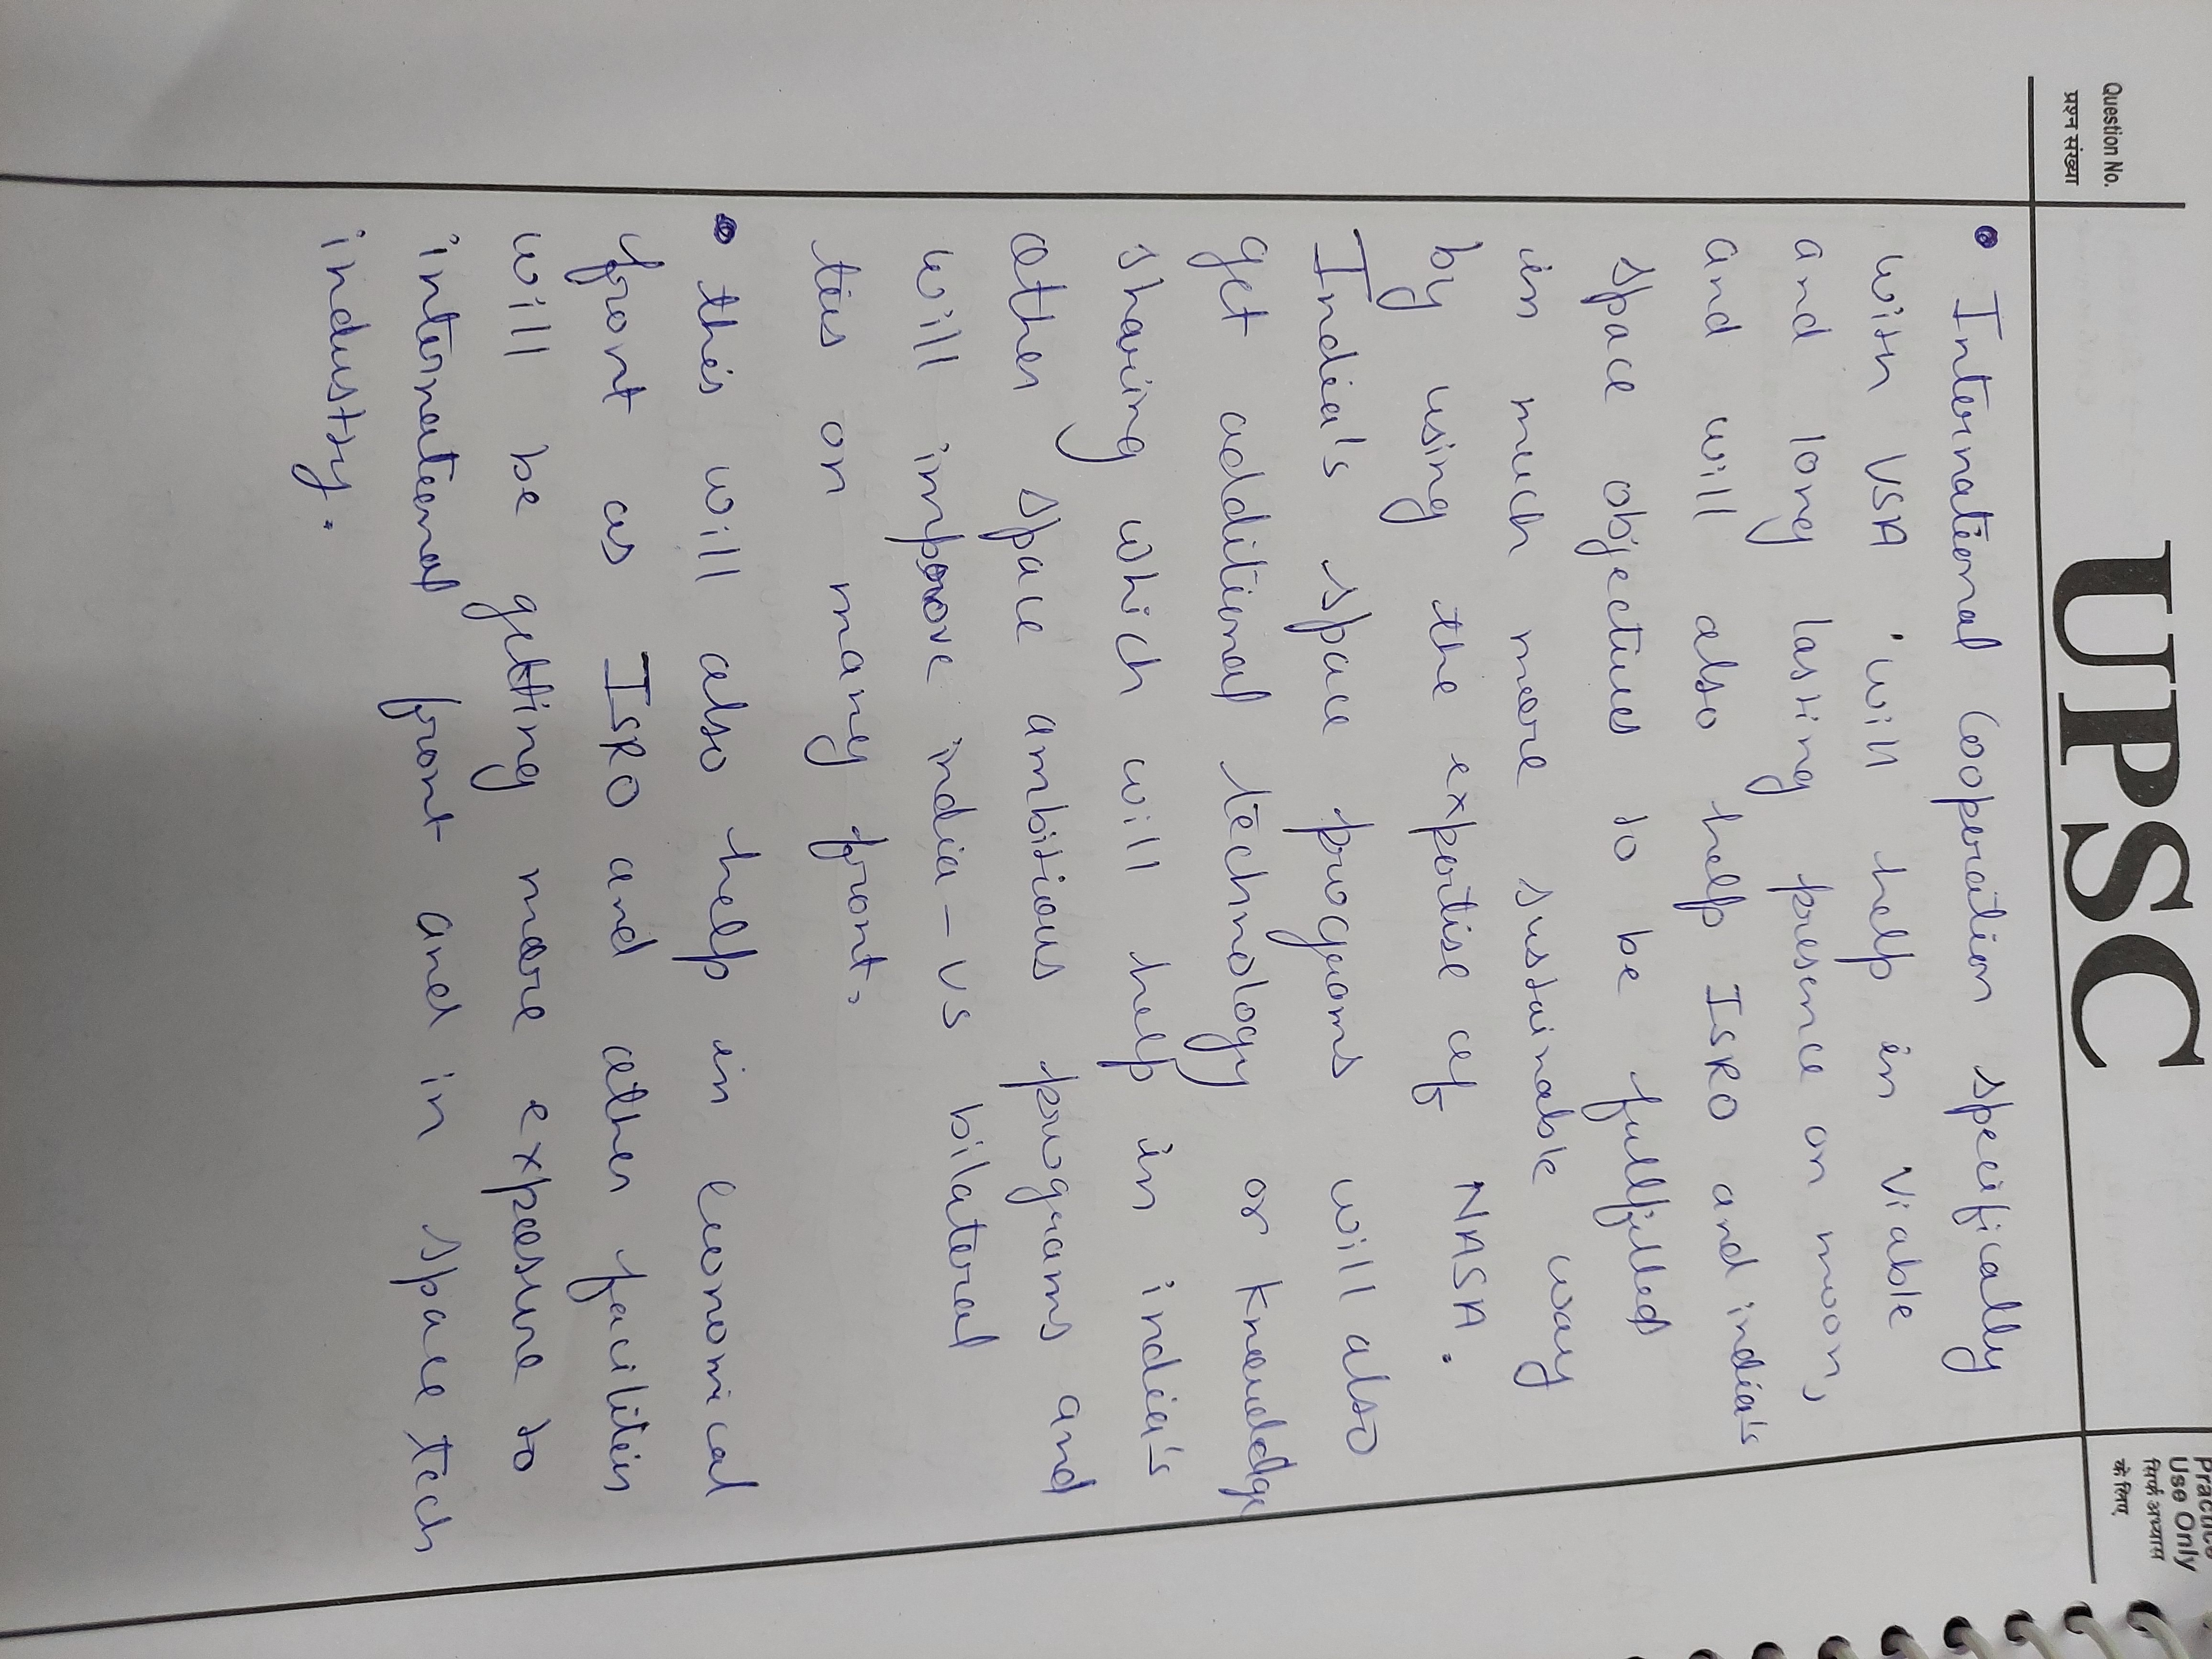 Question No.
प्रश्न संख्या
UPSC
Practice
Use Only
सिर्फ अभ्यास
के लिए
• International Cooperation specifically
with USA will help in viable
and long lasting presence on moon,
and will also help ISRO and india's
space objectives to be fullfilled
in much more sustainable way
by using the expertise of NASA.
India's space programs will also
get additional technology or knowledge
sharing which will help in india's
other space ambitious programs and
will improve india-US bilateral
ties on many front.
• this will also help in economical
front as ISRO and other facilities
will be getting more exposure to
international front and in space tech
industry.